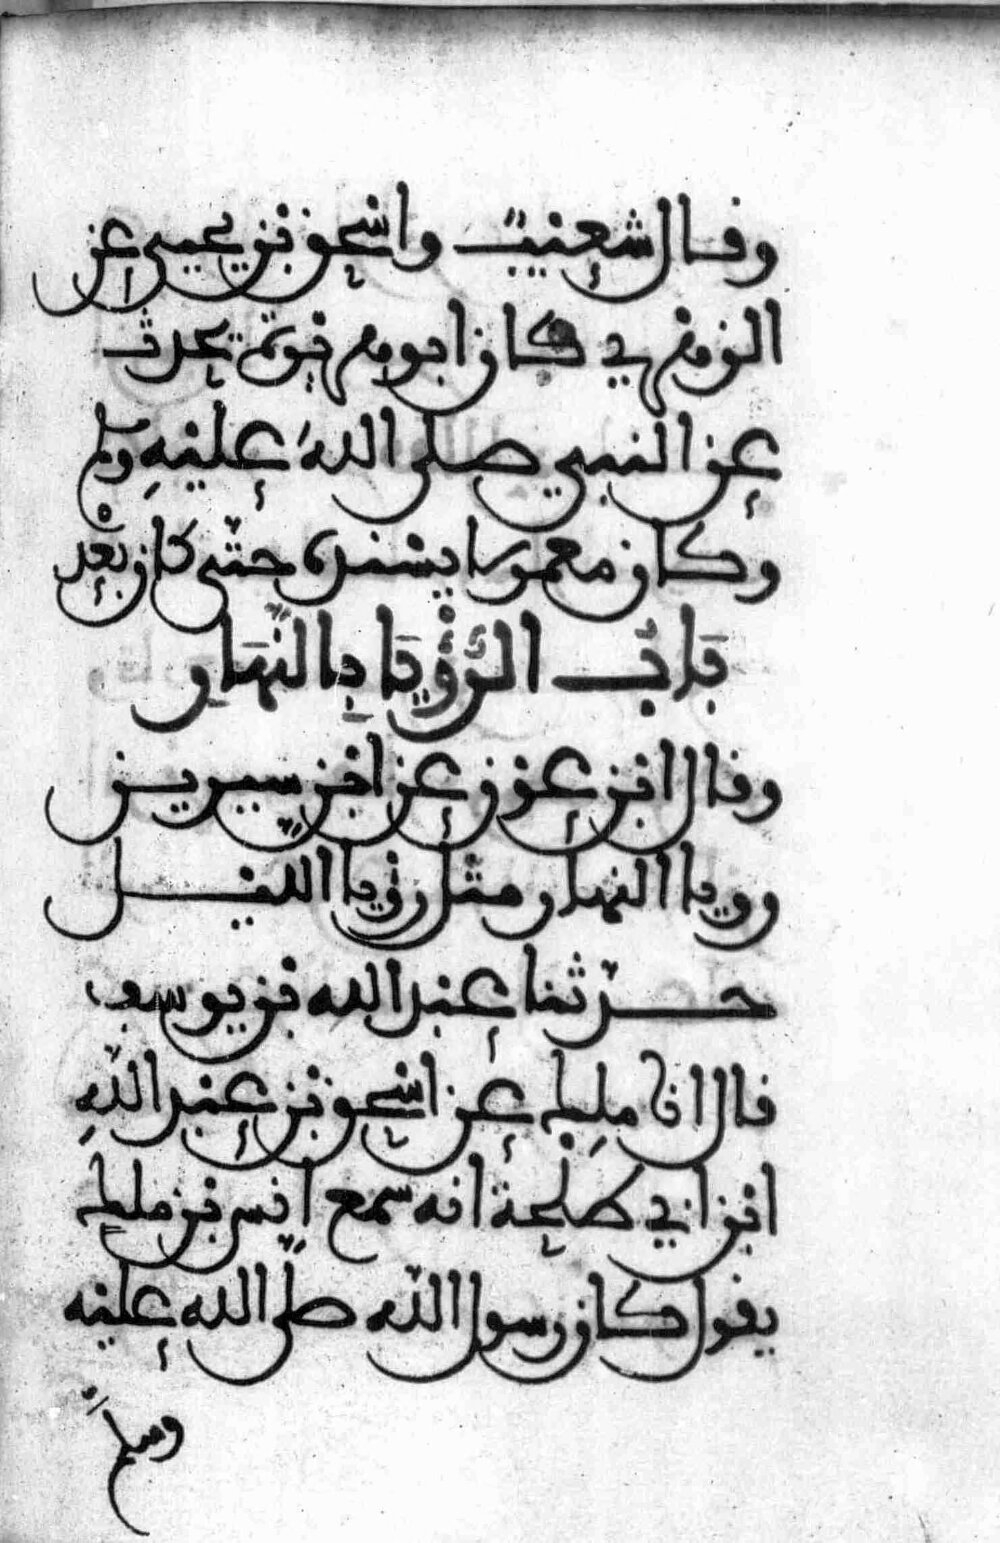 وقال شعيب واسحق بن يحيى عن
الزهري كان ابو هريرة يحدث
عن النبي صلى الله عليه وسلم
وكان معمر لا يسنده حتى كان بعد
بَابُ الرُّؤْيَا بِالنَّهَارِ
وقال ابن عون عن ابن سيرين
رويا النهار مثل رؤيا الليل
حدثنا عبد الله بن يوسف
قال انا ملك عن اسحق بن عبد اللهِ
ابن ابي طلحة انه سمع انس بن ملك
يقول كان رسول الله صلى الله عليه
وسلم